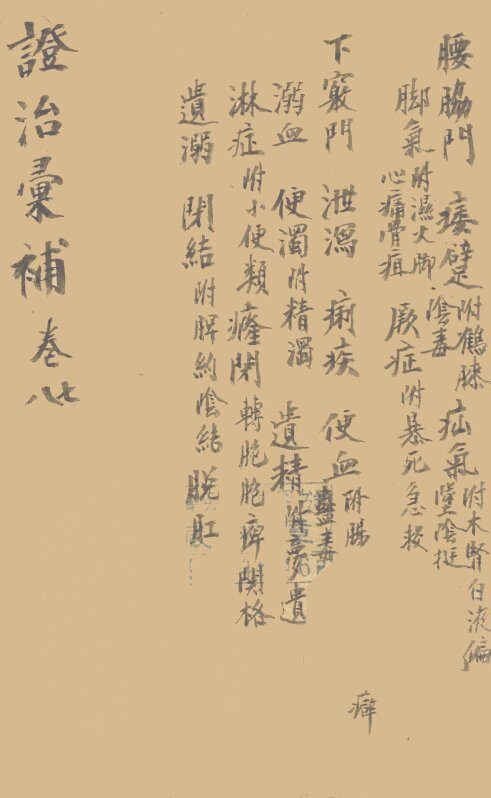 腰脇門 痿躄附鶴膝陰毒 疝氣附木腎白液偏墜陰挺
脚氣附濕火脚心痛骨疽 厥症附暴死急救
下竅門 泄瀉 痢疾 便血附腸蠱毒
溺血 便濁附精濁 遺精附夢遺
淋症附小便類 癃閉轉胞胞痺関格
遺溺 閉結附脾約陰結 脫肛
癖
證治彙補 卷七八